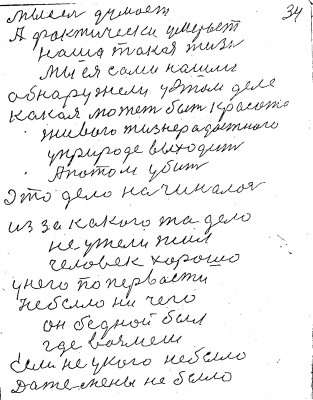 34
мысел думает
А фрактически умерает
наша такая жизн
мы ея сами нашли
обнаружели у этом деле
какая может быт красота
живого жизнерадостного
уприроде выходит
Апотом убит
Это дело начиналоя
из за какого та дело
не ужели жил
человек хорошо
унего поперваети
небыло ни чего
он бедной был
где возмеш
Если не укого небыло
Даже жены не было